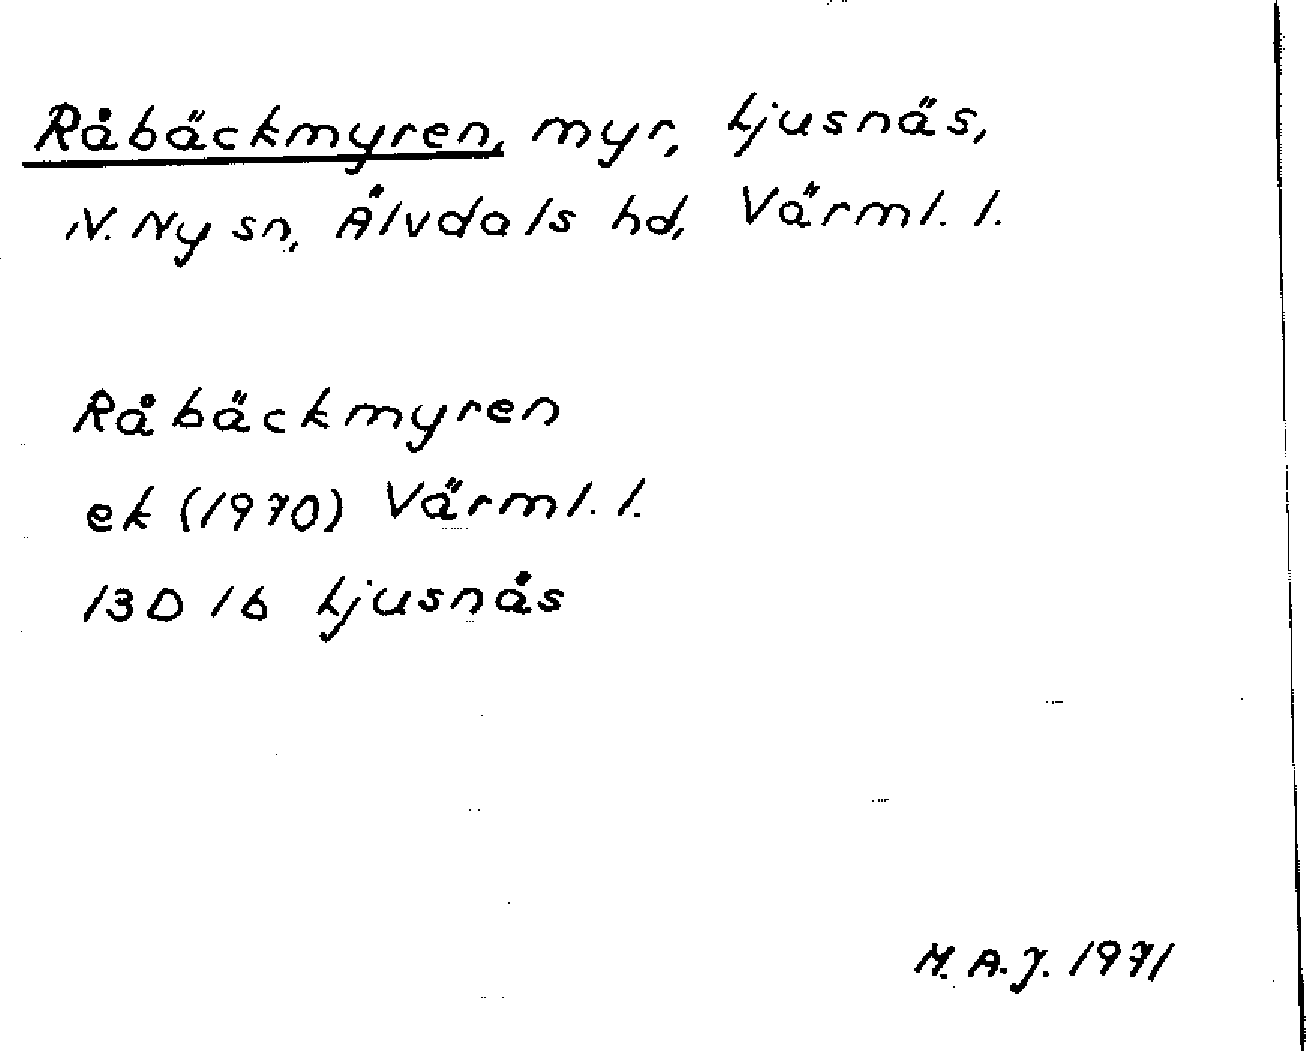 Råbäckmyren, myr, Ljusnäs,
N. Ny sn, Älvdals hd, Värml. l.
Råbäckmyren
ek (1970) Värml. l.
13D 1b Ljusnås
M.A.J. 1971